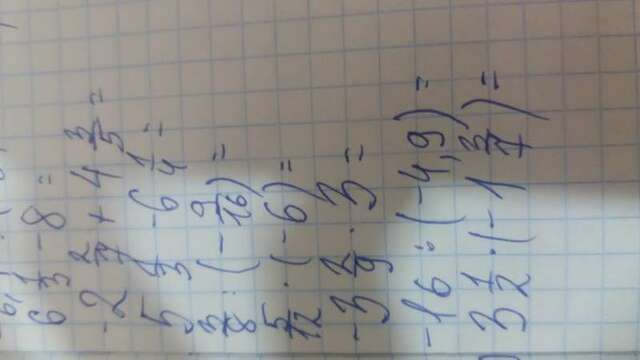 6 1/3 - 8 =
-2 2/7 + 4 3/5 =
5 1/3 - 6 1/4 =
3/8 : (- 9/16) =
5/12 · (-6) =
-3 2/9 · 3 =
-16 : (-4,9) =
) 3 1/2 · (-1 3/7) =